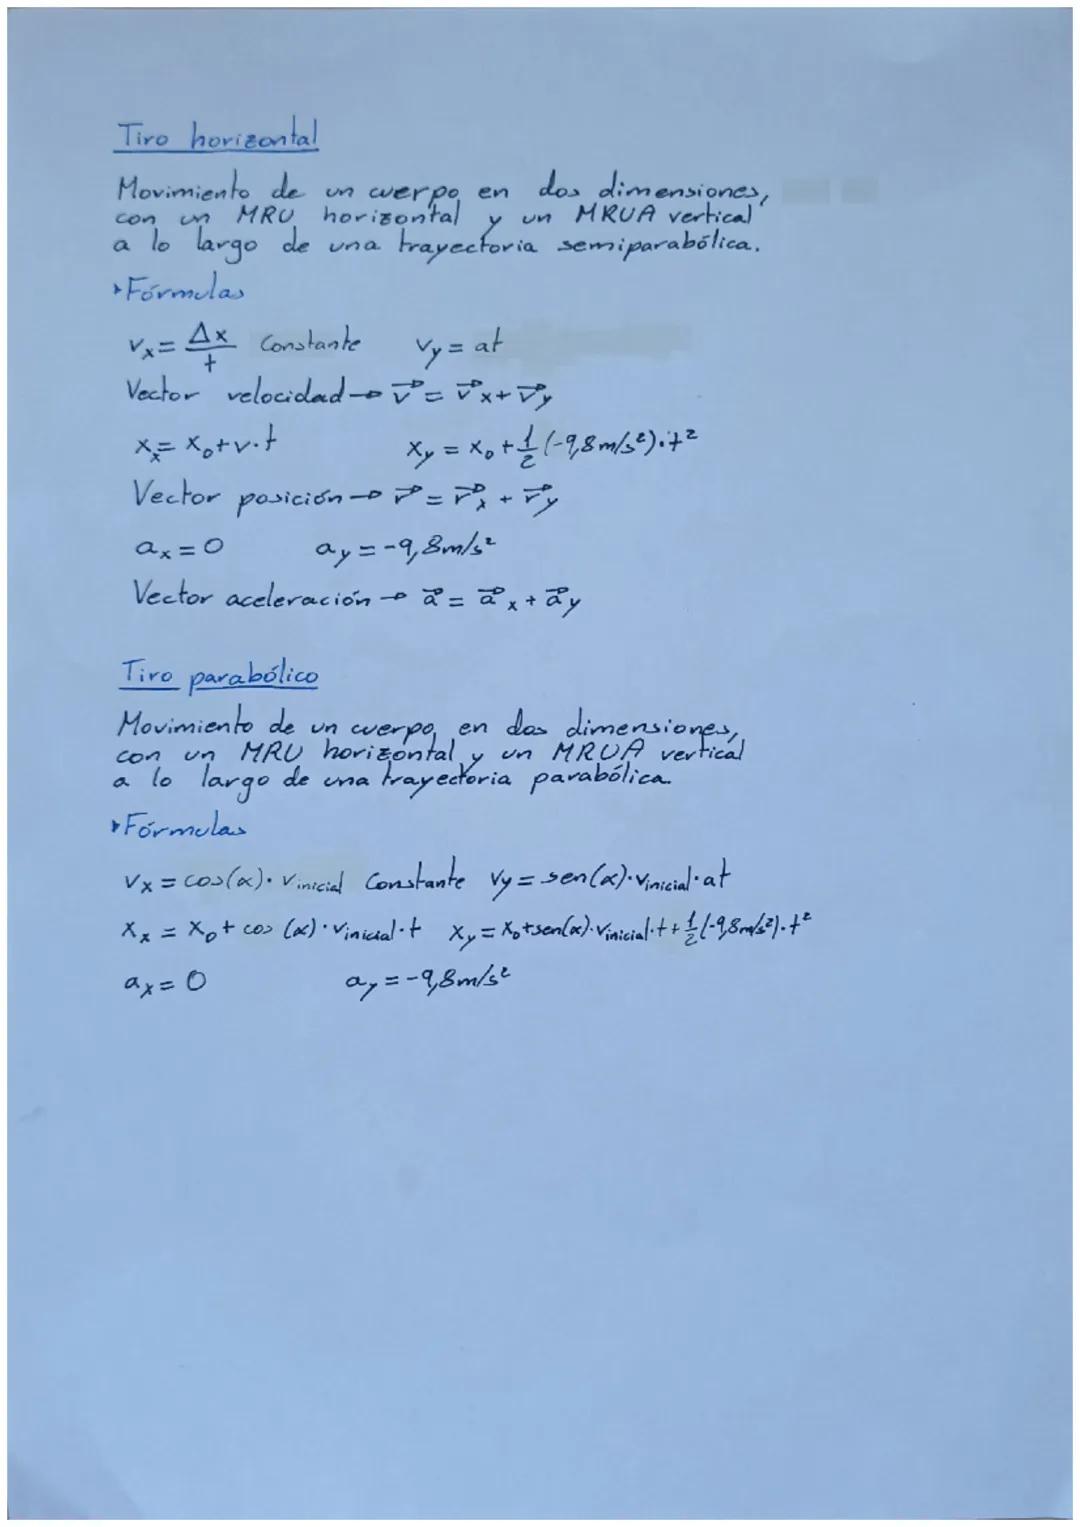 Tiro horizontal
Movimiento de un cuerpo, en dos dimensiones,
con un MRU horizontal y un MRUA vertical
a lo largo de una trayectoria semiparabólica.
▸Fórmulas
Vx = Δx/t Constante Vy = at
Vector velocidad → v⃗ = v⃗x + v⃗y
Xx = X₀ + v·t Xy = X₀ + 1/2 (-9,8 m/s²)·t²
Vector posición → r⃗ = r⃗x + r⃗y
ax = 0 ay = -9,8 m/s²
Vector aceleración → a⃗ = a⃗x + a⃗y
Tiro parabólico
Movimiento de un cuerpo, en dos dimensiones,
con un MRU horizontal y un MRUA vertical
a lo largo de una trayectoria parabólica.
▸Fórmulas
Vx = cos(α)·Vinicial Constante Vy = sen(α)·Vinicial·at
Xx = X₀ + cos (α)·Vinicial·t Xy = X₀ + sen(α)·Vinicial·t + 1/2 (-9,8 m/s²)·t²
ax = 0 ay = -9,8 m/s²